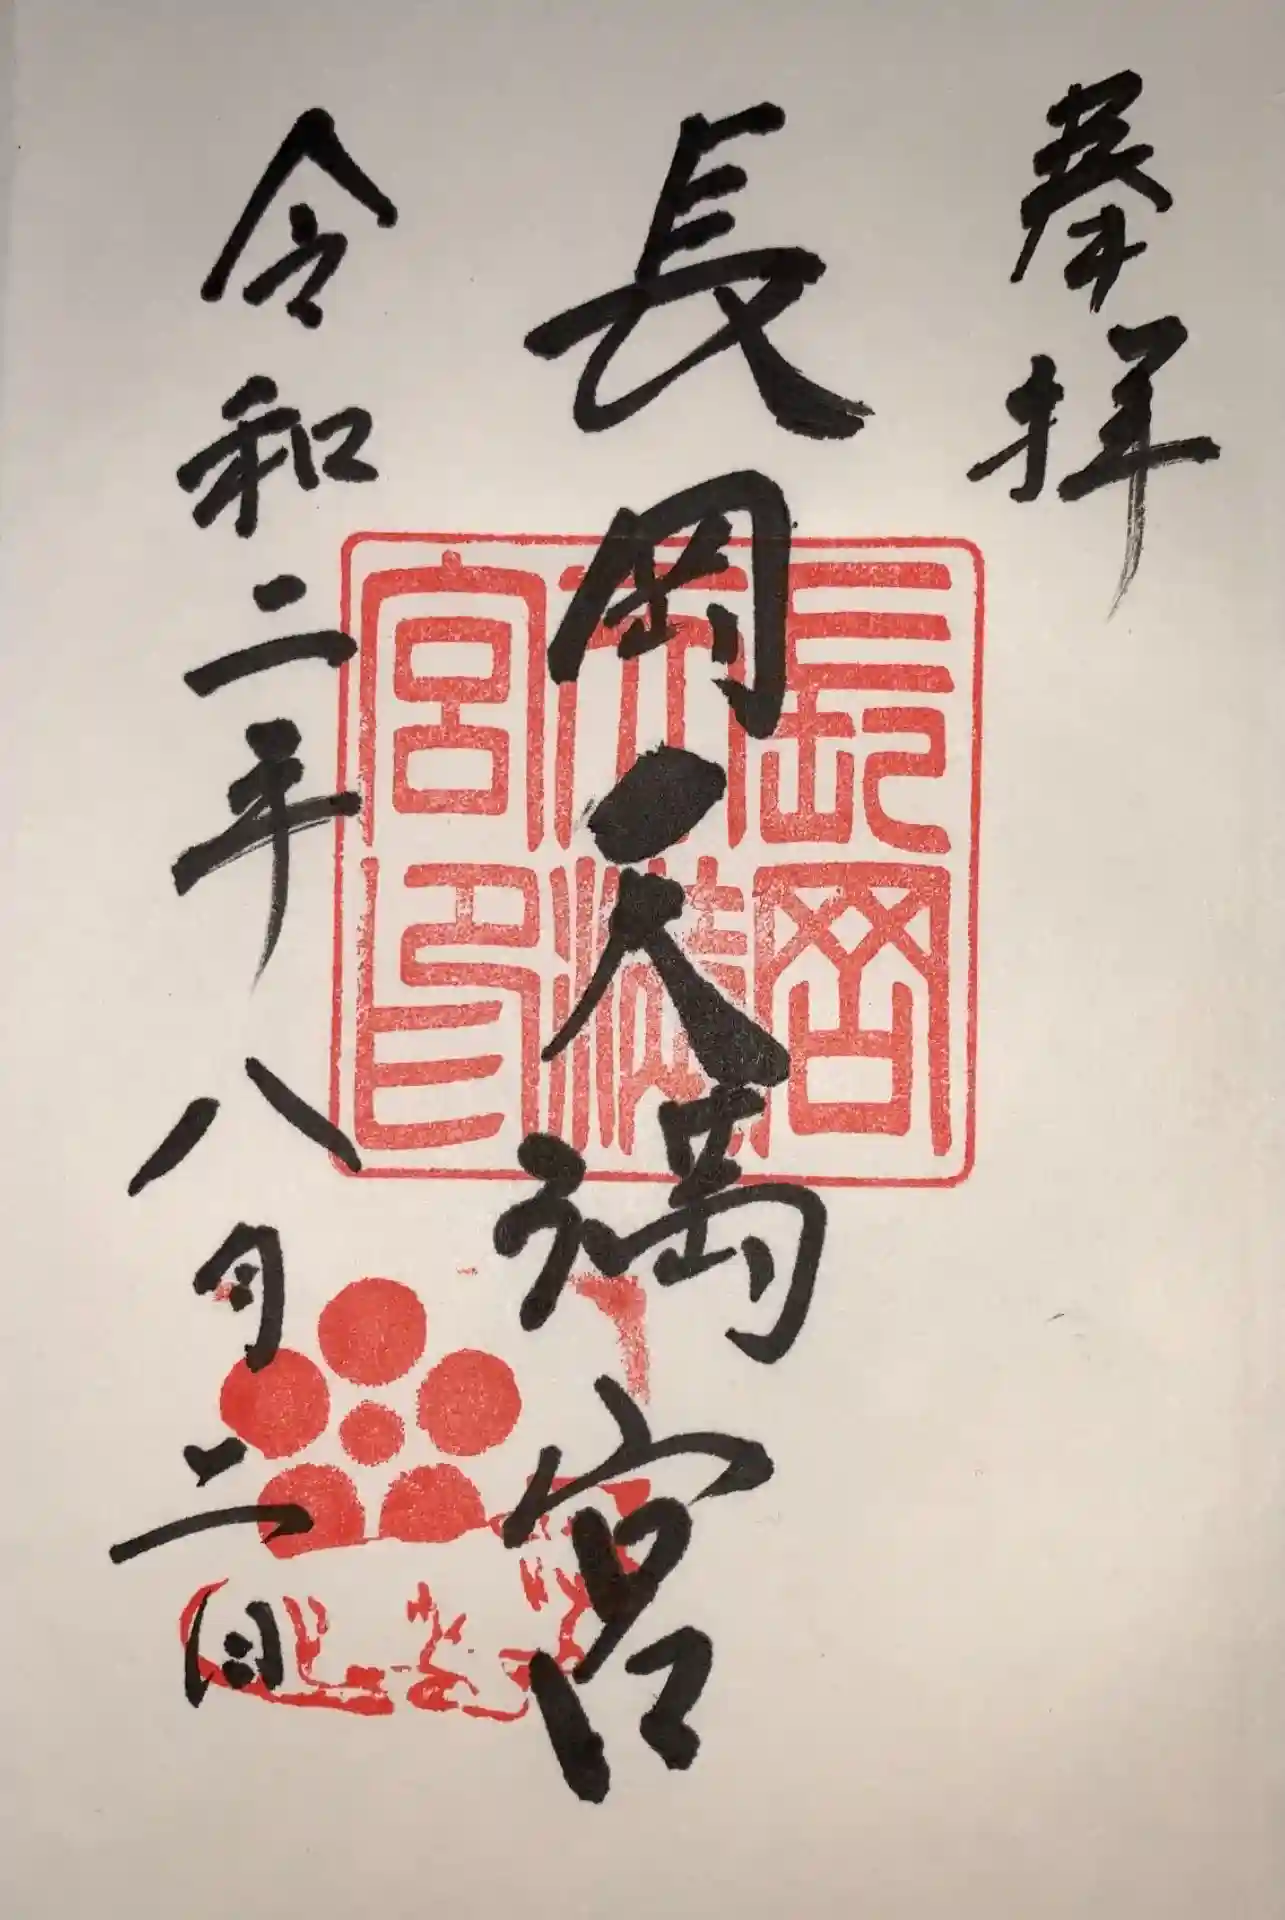 奉拝
長岡天満宮
令和二年八月二日
長岡
天満
宮印